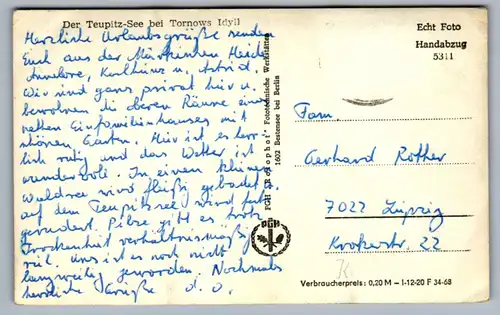 Der Teupitz-See bei Tornows Idyll
Herzliche Urlaubsgrüße senden
Euch aus der Märkischen Heide
Annelore, Karlheinz u. Astrid.
Wir sind ganz privat hier u.
bewohnen die oberen Räume eines
netten Einfamilienhauses mit
schönem Garten. Hier ist es herr-
lich ruhig und das Wetter ist
wundervoll. In einem kleinen
Waldsee wird fleißig gebadet u.
auf dem Teupitzsee wird fest
gerudert. Pilze gibt es trotz
Trockenheit verhältnismäßig
viel. Uns ist es noch nicht
langweilig geworden. Nochmals
herzliche Grüße d. O.
PGH „Rotophot“ Fototechnische Werkstätten
1602 Bestensee bei Berlin
PGH
Echt Foto
Handabzug
5311
Fam.
Gerhard Rother
7022 Leipzig
22
Verbraucherpreis: 0,20 M – I-12-20 F 34-68